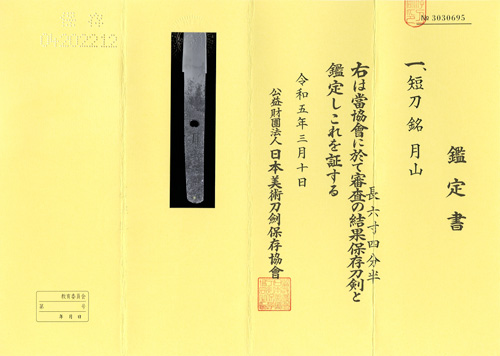 鑑定書
一、短刀 銘 月山
長六寸四分半
右は當協會に於て審査の結果保存刀剣と
鑑定しこれを証する
令和五年三月十日
公益財團法人 日本美術刀剣保存協會
№ 3030695
保存
202212
教育委員会
第 号
年 月 日